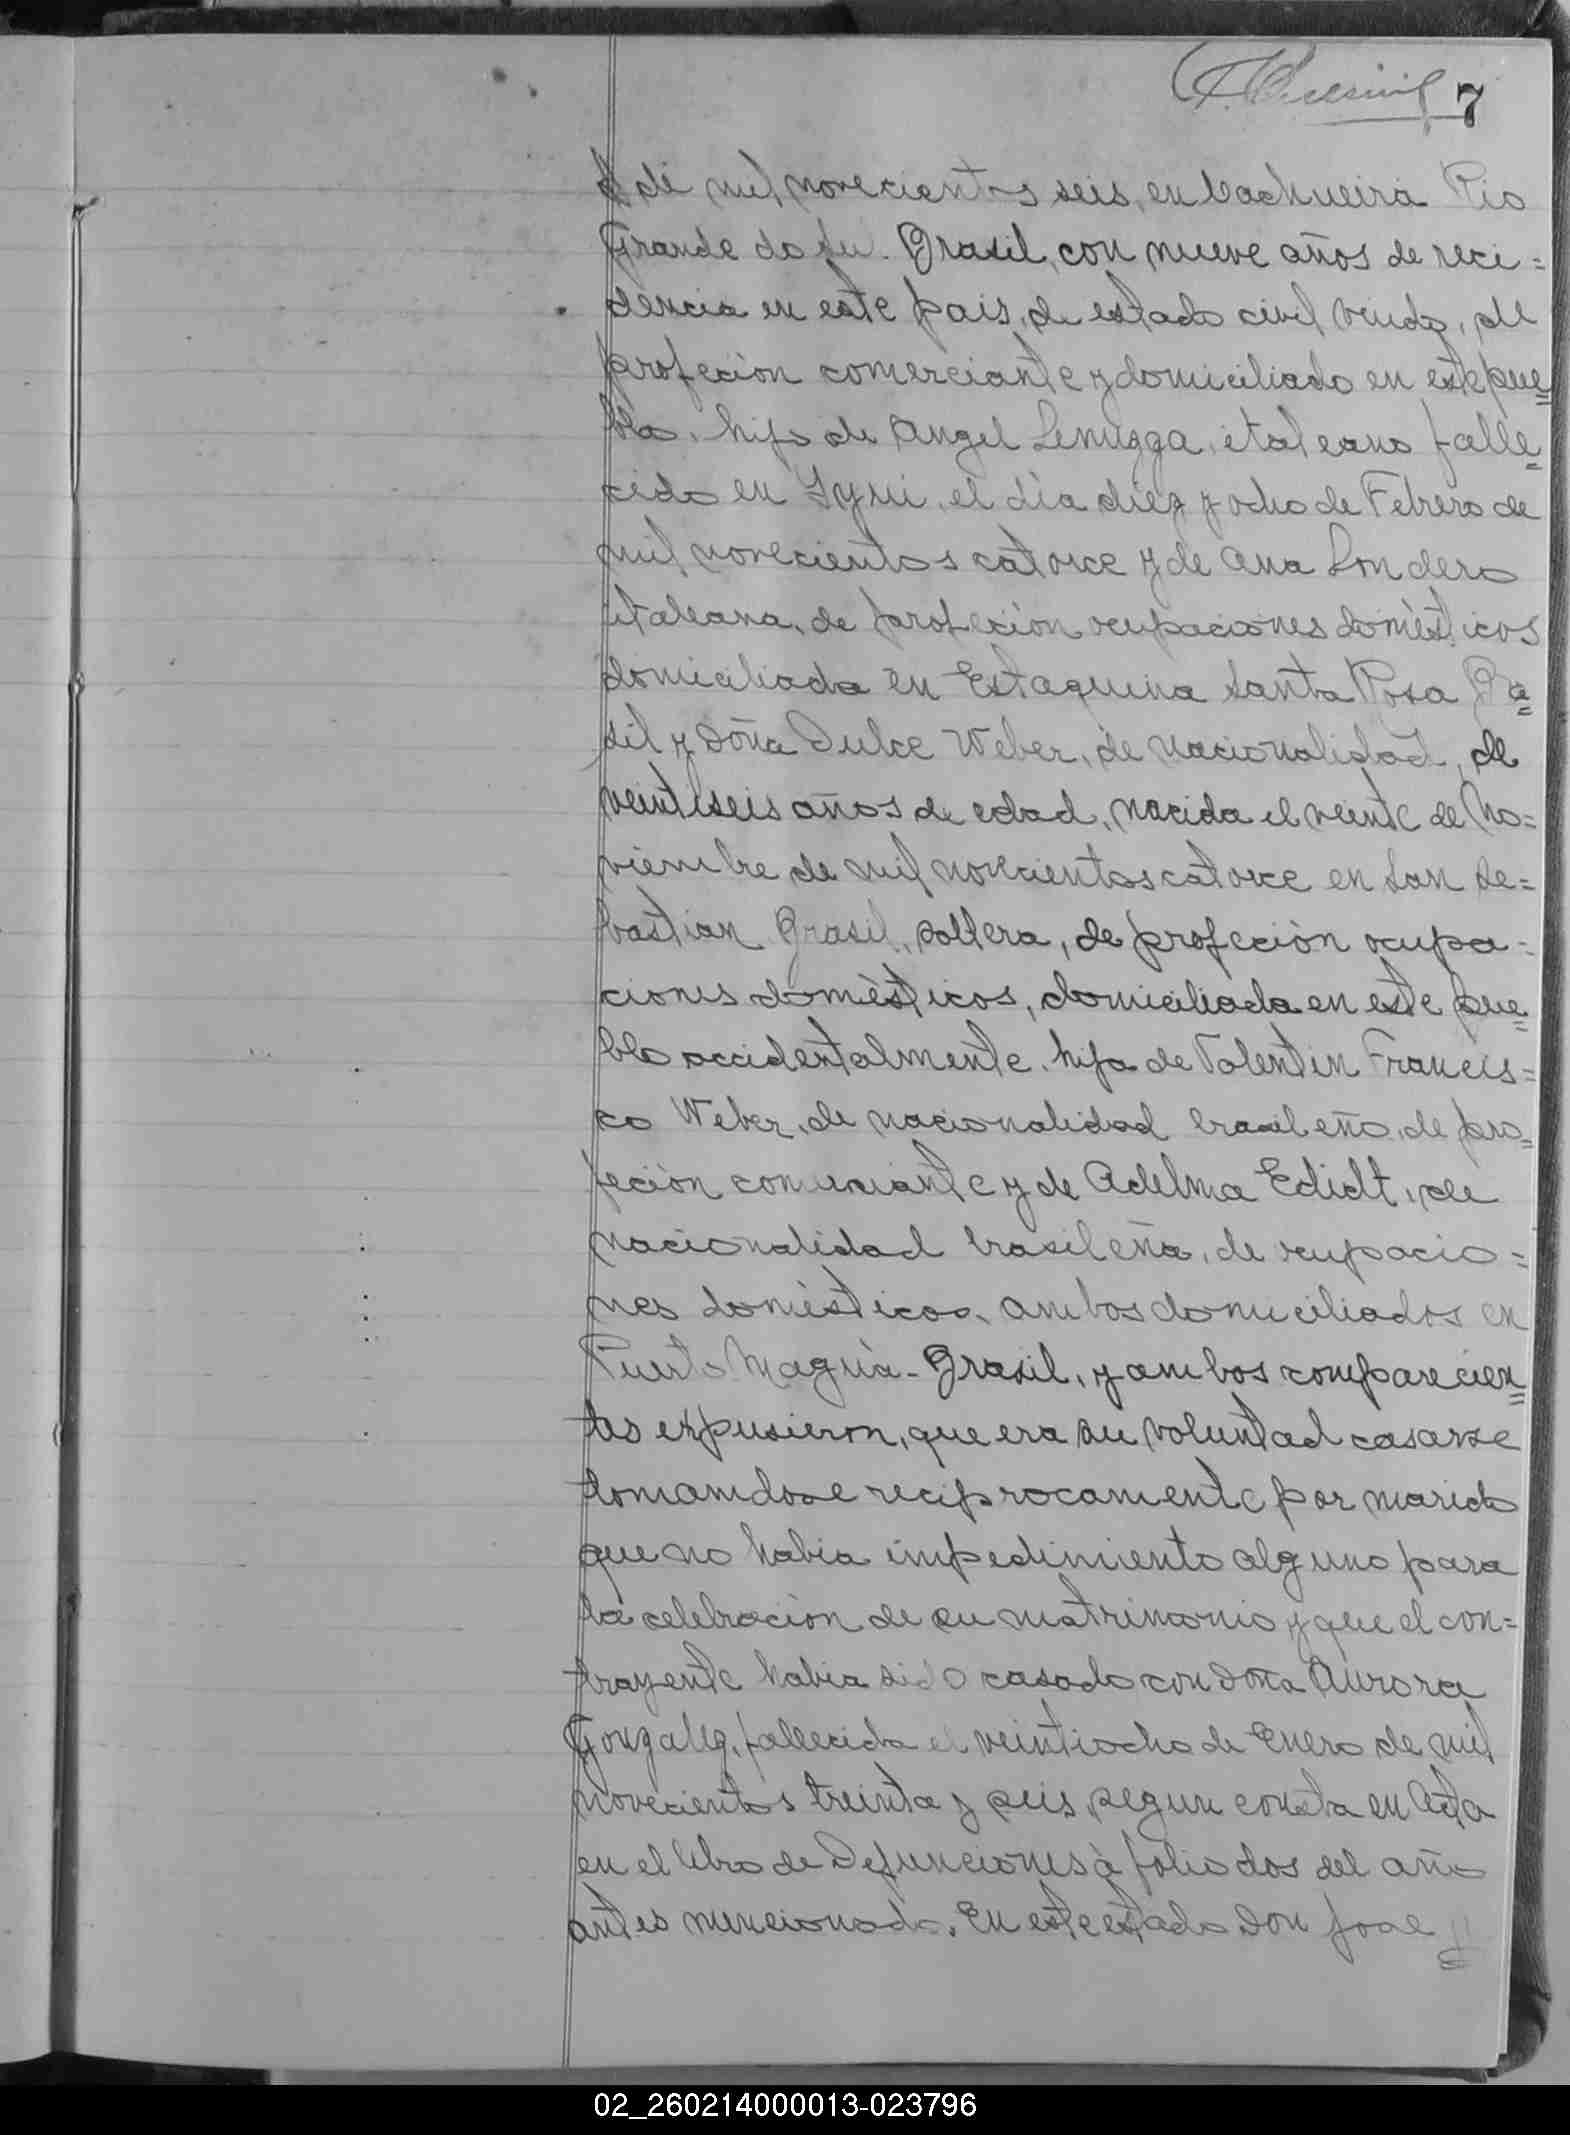 7
de mil novecientos seis, en Cachueira Rio
Grande do Su. Brasil, con nueve años de reci=
dencia en este pais, de estado civil viudo, de
profeción comerciante y domiciliado en este pue=
blo. hijo de Angel Lenuzza, italeano falle=
cido en Yjui, el día diez y ocho de Febrero de
mil novecientos catorce y de Ana Londero
italeana, de profeción ocupaciones domésticos
domiciliada en Estaquina Santa Rosa Bra=
sil y doña Dulce Weber, de nacionalidad, de
veintiseis años de edad, nacida el veinte de No=
viembre de mil novecientos catorce en San Se=
bastian Brasil, soltera, de profeción ocupa=
ciones domésticos, domiciliada en este pue=
blo accidentalmente. hija de Valentin Francis=
co Weber, de nacionalidad brasileño, de pro=
feción comerciante y de Adelma Edidt, de
nacionalidad brasileña, de ocupacio=
nes domésticos, ambos domiciliados en
Puerto Maguá-Brasil, y ambos comparecien=
tes expusieron, que era su voluntad casarse
tomandose reciprocamente por marido
que no habia impedimiento alguno para
la celebración de su matrimonio y que el con=
trayente habia sido casado con doña Aurora
Gonzalez, fallecida el veintiocho de Enero de mil
novecientos treinta y seis, segun consta en Acta
en el libro de Defunciones á folio dos del año
antes mencionado. En este estado Don Jose
02_260214000013-023796